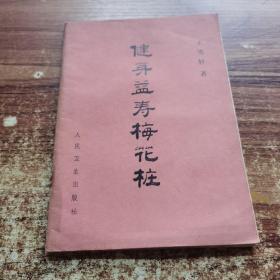 健身益寿梅花桩
著
人民卫生出版社